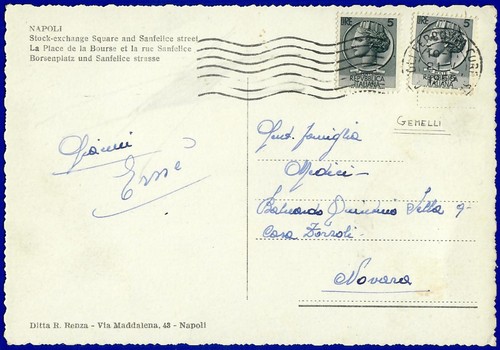 NAPOLI
Stock-exchange Square and Sanfelice street
La Place de la Bourse et la rue Sanfelice
Börsenplatz und Sanfelice strasse
LIRE
LIRE 5
REPUBBLICA
ITALIANA
REPUBBLICA
ITALIANA
GEMELLI
Gent. famiglia
Medici
Gianni
Quintino Sella 9-
Casa
Novara
Ditta R. Renza - Via Maddalena, 43 - Napoli